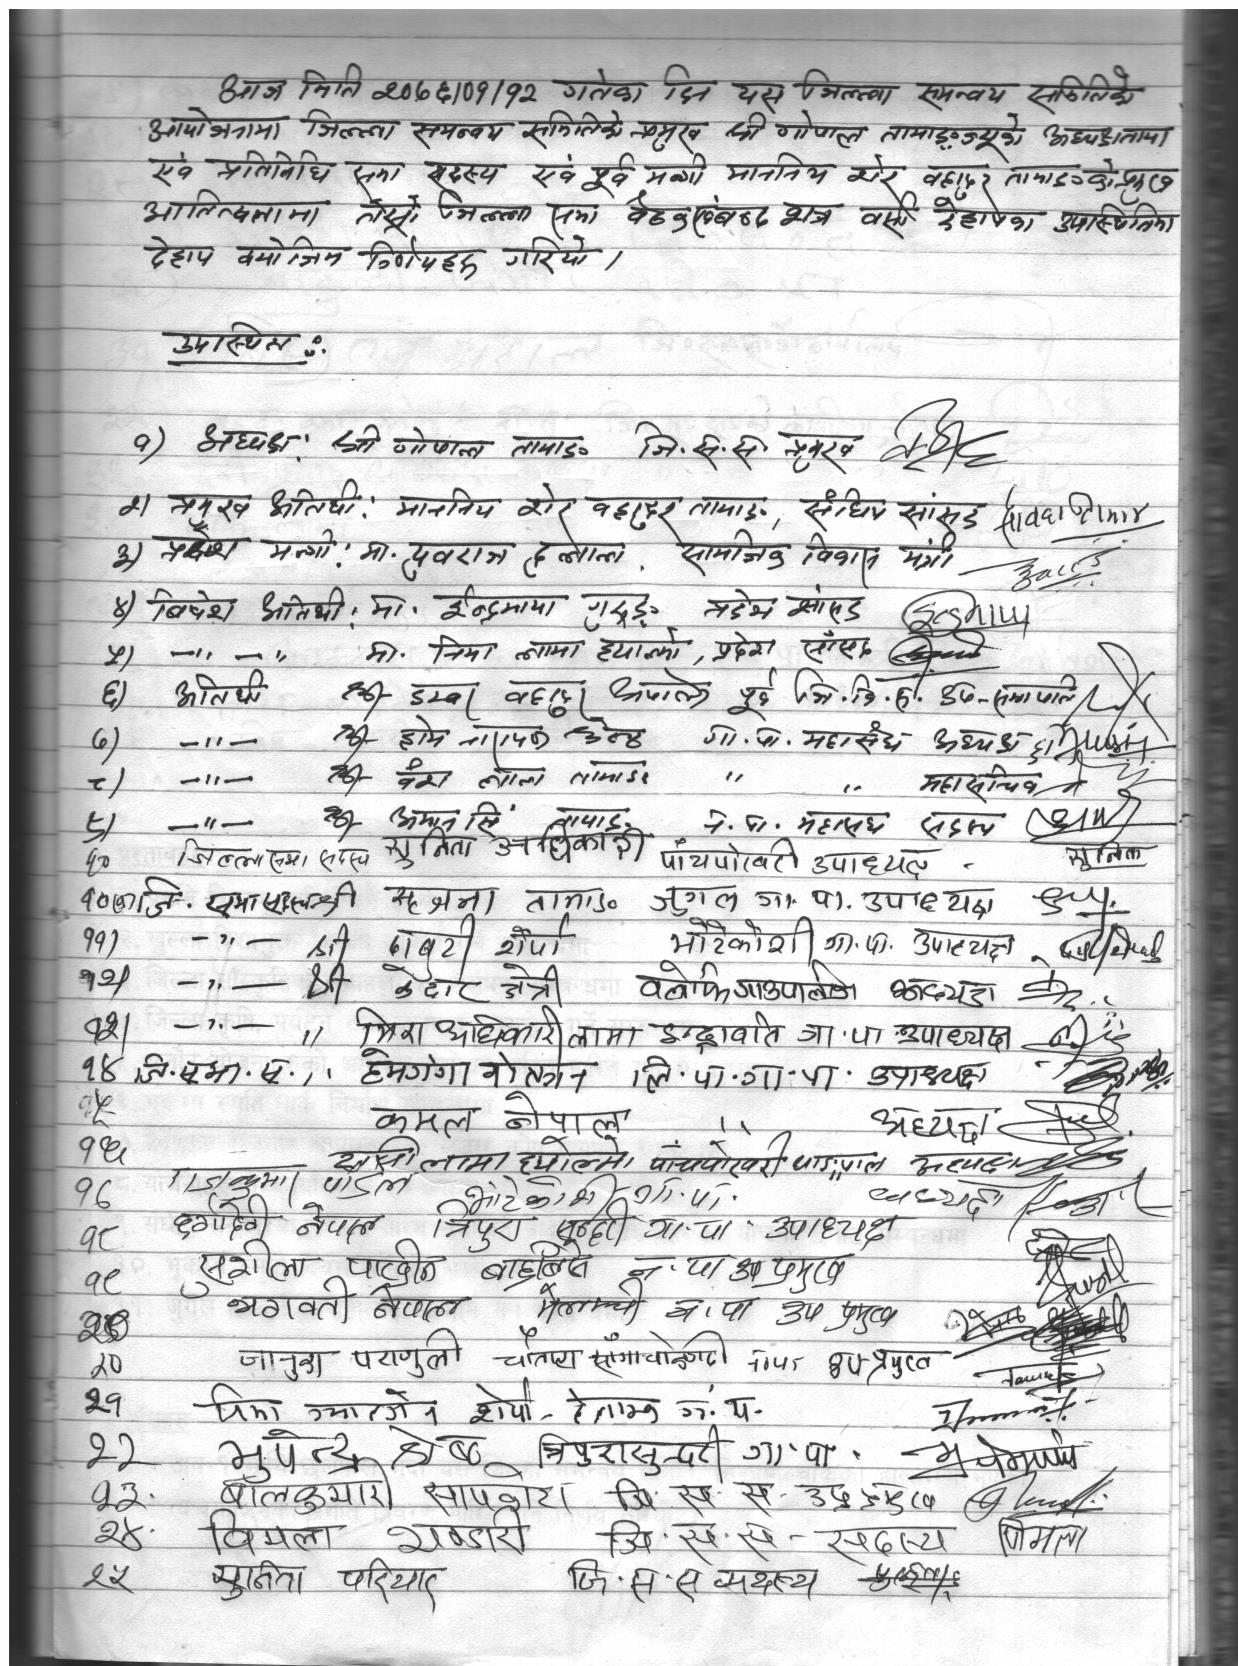 आज मिति २०७६/०१/१२ गतेका दिन यस जिल्ला समन्वय समितिको
आयोजनामा जिल्ला समन्वय समितिको प्रमुख श्री गोपाल तामाङज्यूको अध्यक्षतामा
एवं प्रतिनिधि सभा सदस्य एवं पूर्व मन्त्री माननिय शेर बहादुर तामाङको प्रमुख
आतिथ्यतामा तेस्रो जिल्ला सभा बैठक बसी देहायका उपस्थितिमा
देहाय बमोजिम निर्णयहरू गरियो ।
उपस्थित :
१) अध्यक्ष: श्री गोपाल तामाङ जि.स.स. प्रमुख
२) प्रमुख अतिथी: माननिय शेर बहादुर तामाङ, संघिय सांसद
३) प्रदेश मन्त्री: मा. युवराज दुलाल, सामाजिक विकास मंत्री
४) विषेश अतिथी: मा. ईन्द्रमाया गुरुङ प्रदेश सांसद
५) —"— " मा. निमा लामा ह्योल्मो, प्रदेश सांसद
६) अतिथी श्री डम्बर बहादुर अर्याल पूर्व जि.वि.स. उप-सभापति
७) —"— श्री होम नारायण श्रेष्ठ गा.पा. महासंघ अध्यक्ष
८) —"— श्री वंश लाल तामाङ " " महासचिव
९) —"— श्री अमान सिं तामाङ न.पा. महासंघ सदस्य
१० जिल्ला सभा सदस्य सुनिता अधिकारी पाँचपोखरी उपाध्यक्ष - सुनिता
१०) जि. सभा सदस्य श्री सृजना तामाङ जुगल गा.पा. उपाध्यक्ष
११) —"— श्री दावुटी शेर्पा भोटेकोशी गा.पा. उपाध्यक्ष
१२) —"— श्री केदार क्षेत्री बलेफि गाउपालिका अध्यक्ष
१३) —"— " मिरा अधिकारी लामा इन्द्रावति गा.पा उपाध्यक्ष
१४ जि.सभा.स. ,, हेमगंगा बोलाजन लि.पा.गा.पा. उपाध्यक्ष
१५ कमल नेपाल ,, अध्यक्ष
१६ लामा ह्योल्मो पाँचपोखरी थाङपाल अध्यक्ष
१७ राजकुमार पौडेल भोटेकोशी गा.पा. अध्यक्ष
१८ दुर्गादेवी नेपाल त्रिपुरा सुन्दरी गा.पा. उपाध्यक्ष
१९ सुशीला पाख्रीन बाह्रबिसे न.पा उप प्रमुख
भगवती नेपाल मेलम्ची न.पा उप प्रमुख
२० जानुका पराजुली चौतारा साँगाचोकगढी नपा उप-प्रमुख
२१ निमा ग्याल्जेन शेर्पा - हेलम्बु गा.पा.
२२ भुपेन्द्र श्रेष्ठ त्रिपुरासुन्दरी गा.पा.
२३. बालकुमारी सापकोटा जि.स.स. उप प्रमुख
२४. विमला भण्डारी जि.स.स - सदस्य विमला
२५ सुनिता परियार जि.स.स सदस्य